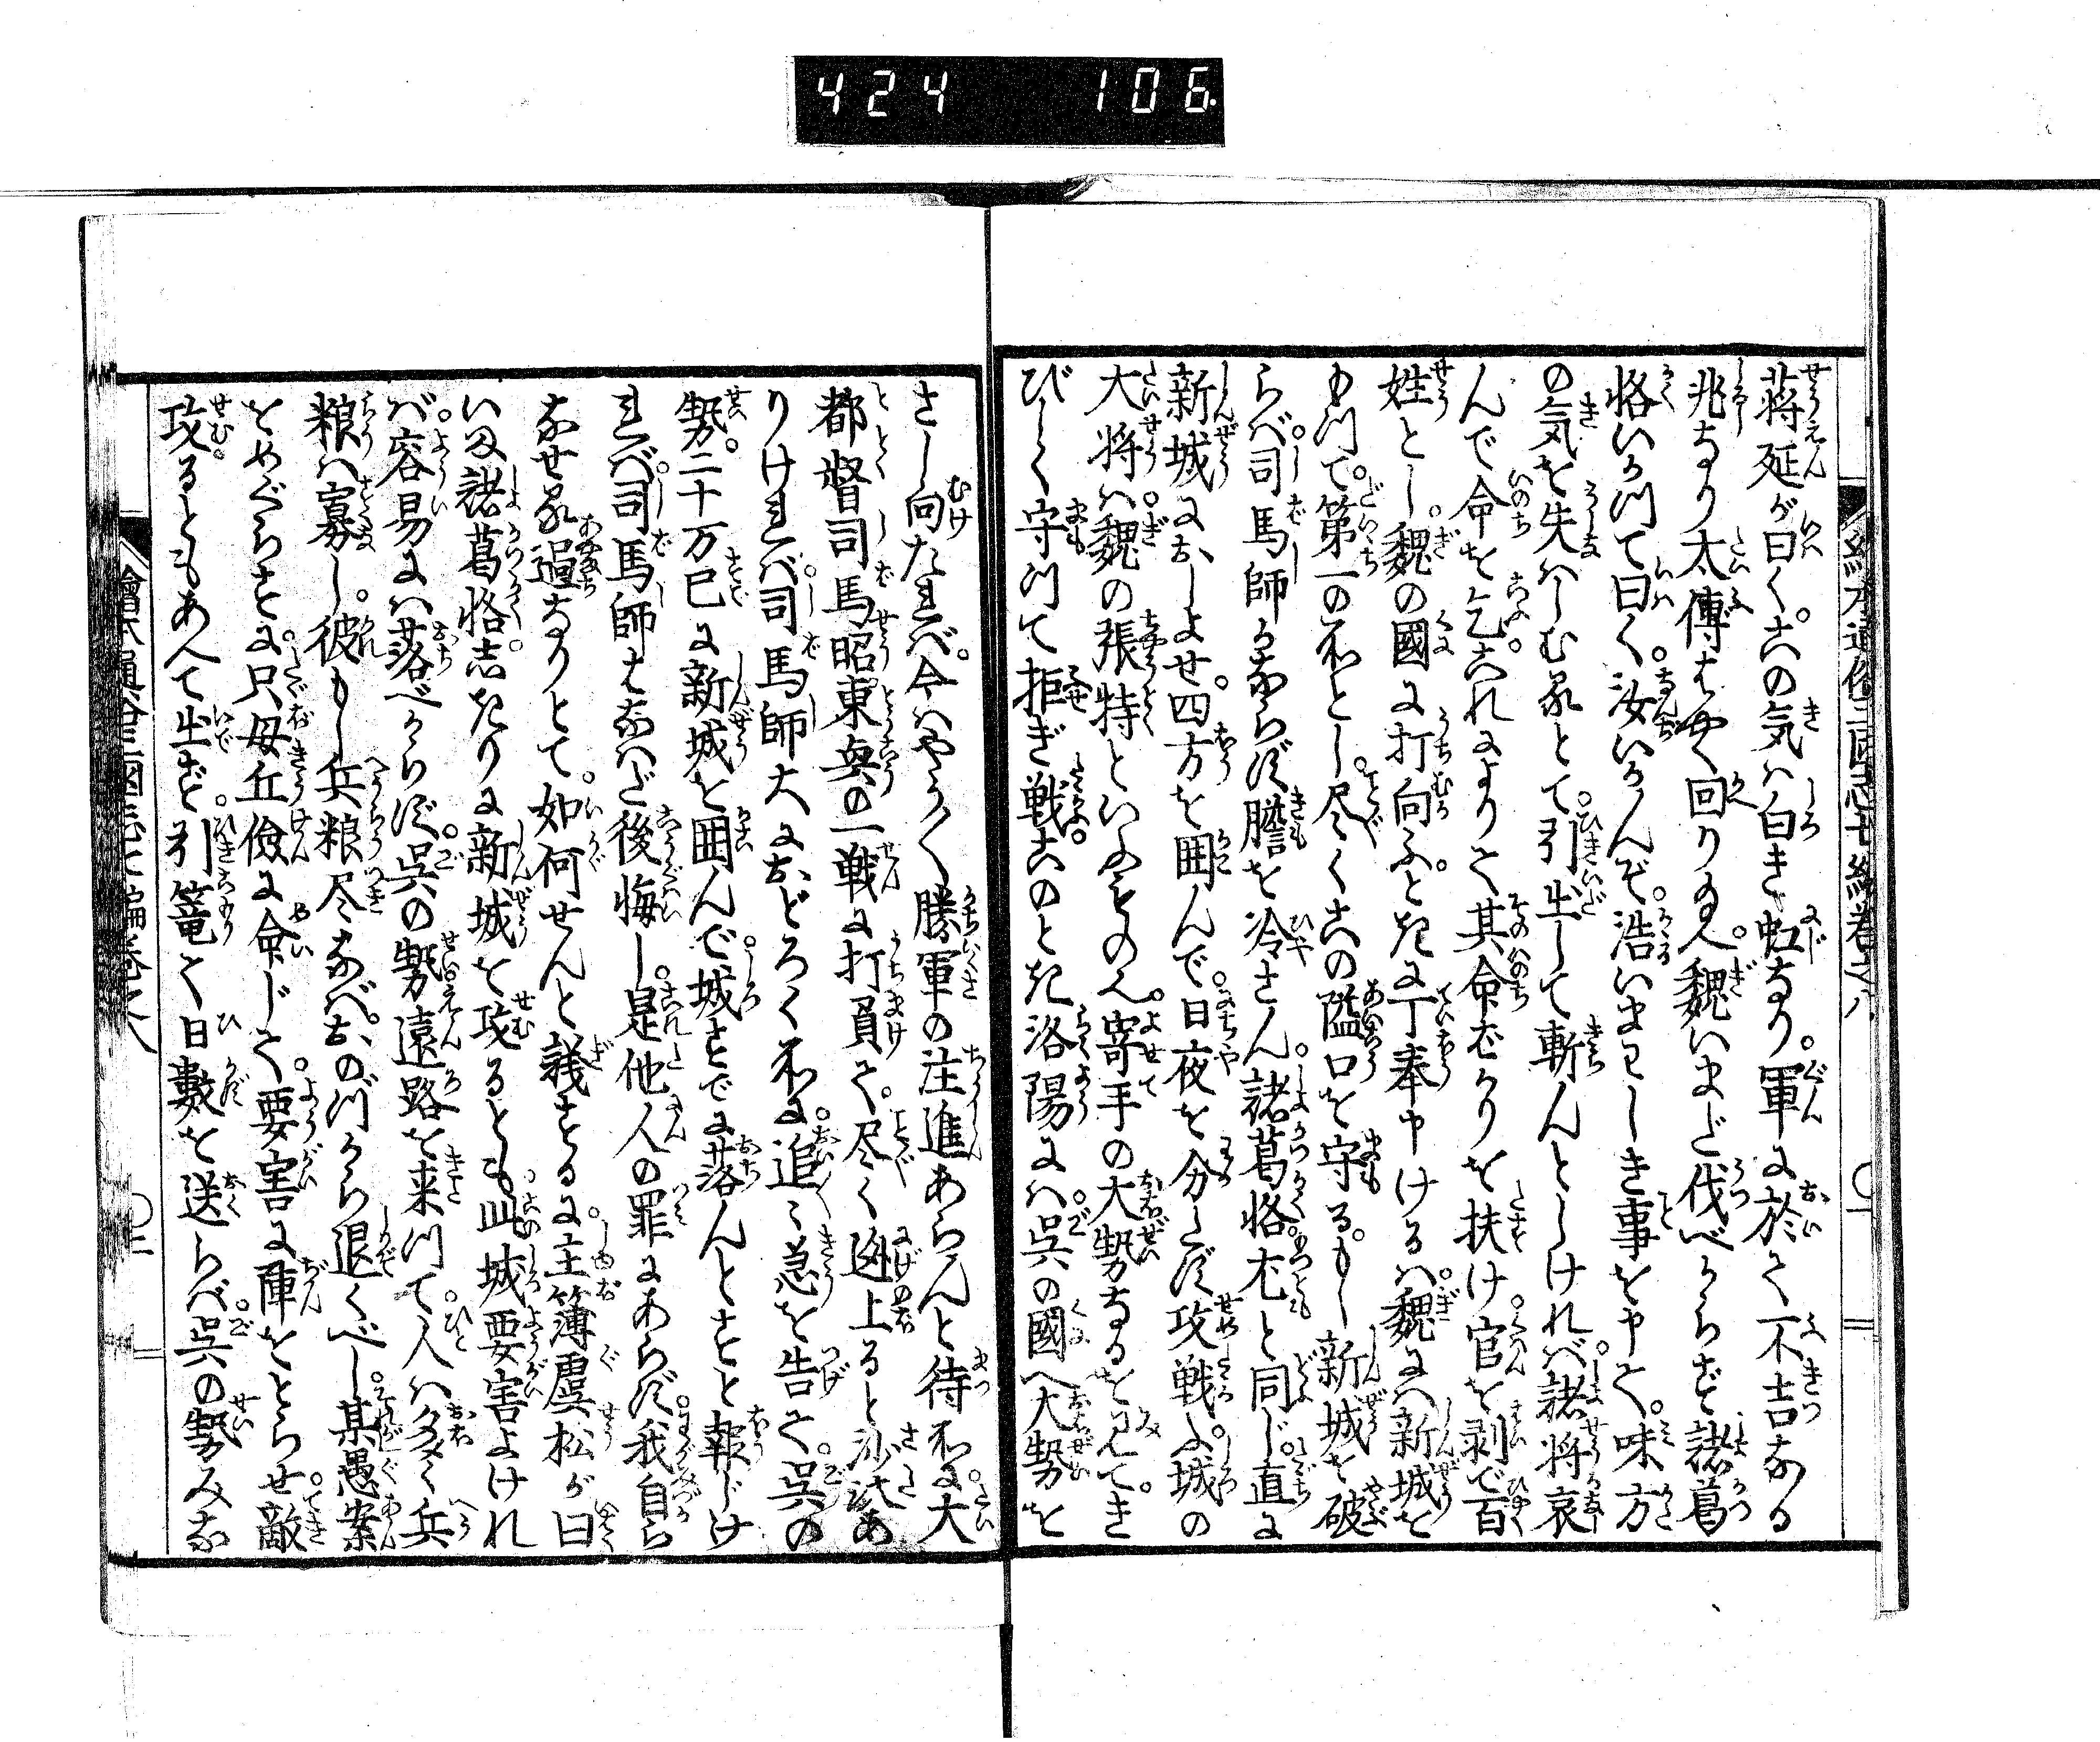 424 106
蒋延が曰く。此の気は白き虹なり。軍に於て不吉なる
兆なり太傅はやく回り玉へ。魏いまだ伐べからず諸葛
恪いかつて曰く。汝いかんぞ。浩いまはしき事を申て。味方
の気を失はしむるとて。引出して斬んとしければ。諸将哀
んで命を乞。これによりて其命ばかりを扶け。官を剥で百
姓とし。魏の國に打向ふ。ときに丁奉申けるは。魏には新城を
もつて。第一の

とし。尽く此の隘口を守る。もし新城を破
らば。司馬師かならず膽を冷さん。諸葛恪尤と同じ。直に
新城におしよせ。四方を囲んで。日夜を分たず攻戦ふ。城の
大将は。魏の張特といふものへ。寄手の大勢なるを見て。き
びしく守つて拒ぎ戦。このとき洛陽には。呉の國へ大勢を
さし向たれば。今はやかく勝軍の注進あらんと待不に。大
都督司馬昭。東興の一戦に打負て。尽く迯上ると沙汰あ
りければ。司馬師大におどろく不に。追〻急を告て。呉の
勢。二十万已に新城を囲んで。城すでに落んとすと報じけ
れば。司馬師はなはだ後悔し。是他人の罪にあらず。我自ら
なせる過なりとて。如何せんと議するに。主簿虞松が曰
いま諸葛恪。志きりに新城を攻るとも。此城要害よけれ
ば。容易には落べからず。呉の勢。遠路を来つて。人は多く兵
粮は寡し。彼もし兵粮尽なば。おのづから退くべし。某愚案
をめぐらすに。只毋丘儉に命じて。要害に陣をとらせ。敵
攻。るともあへて出ず。引篭て日数を送らば。呉の勢みな